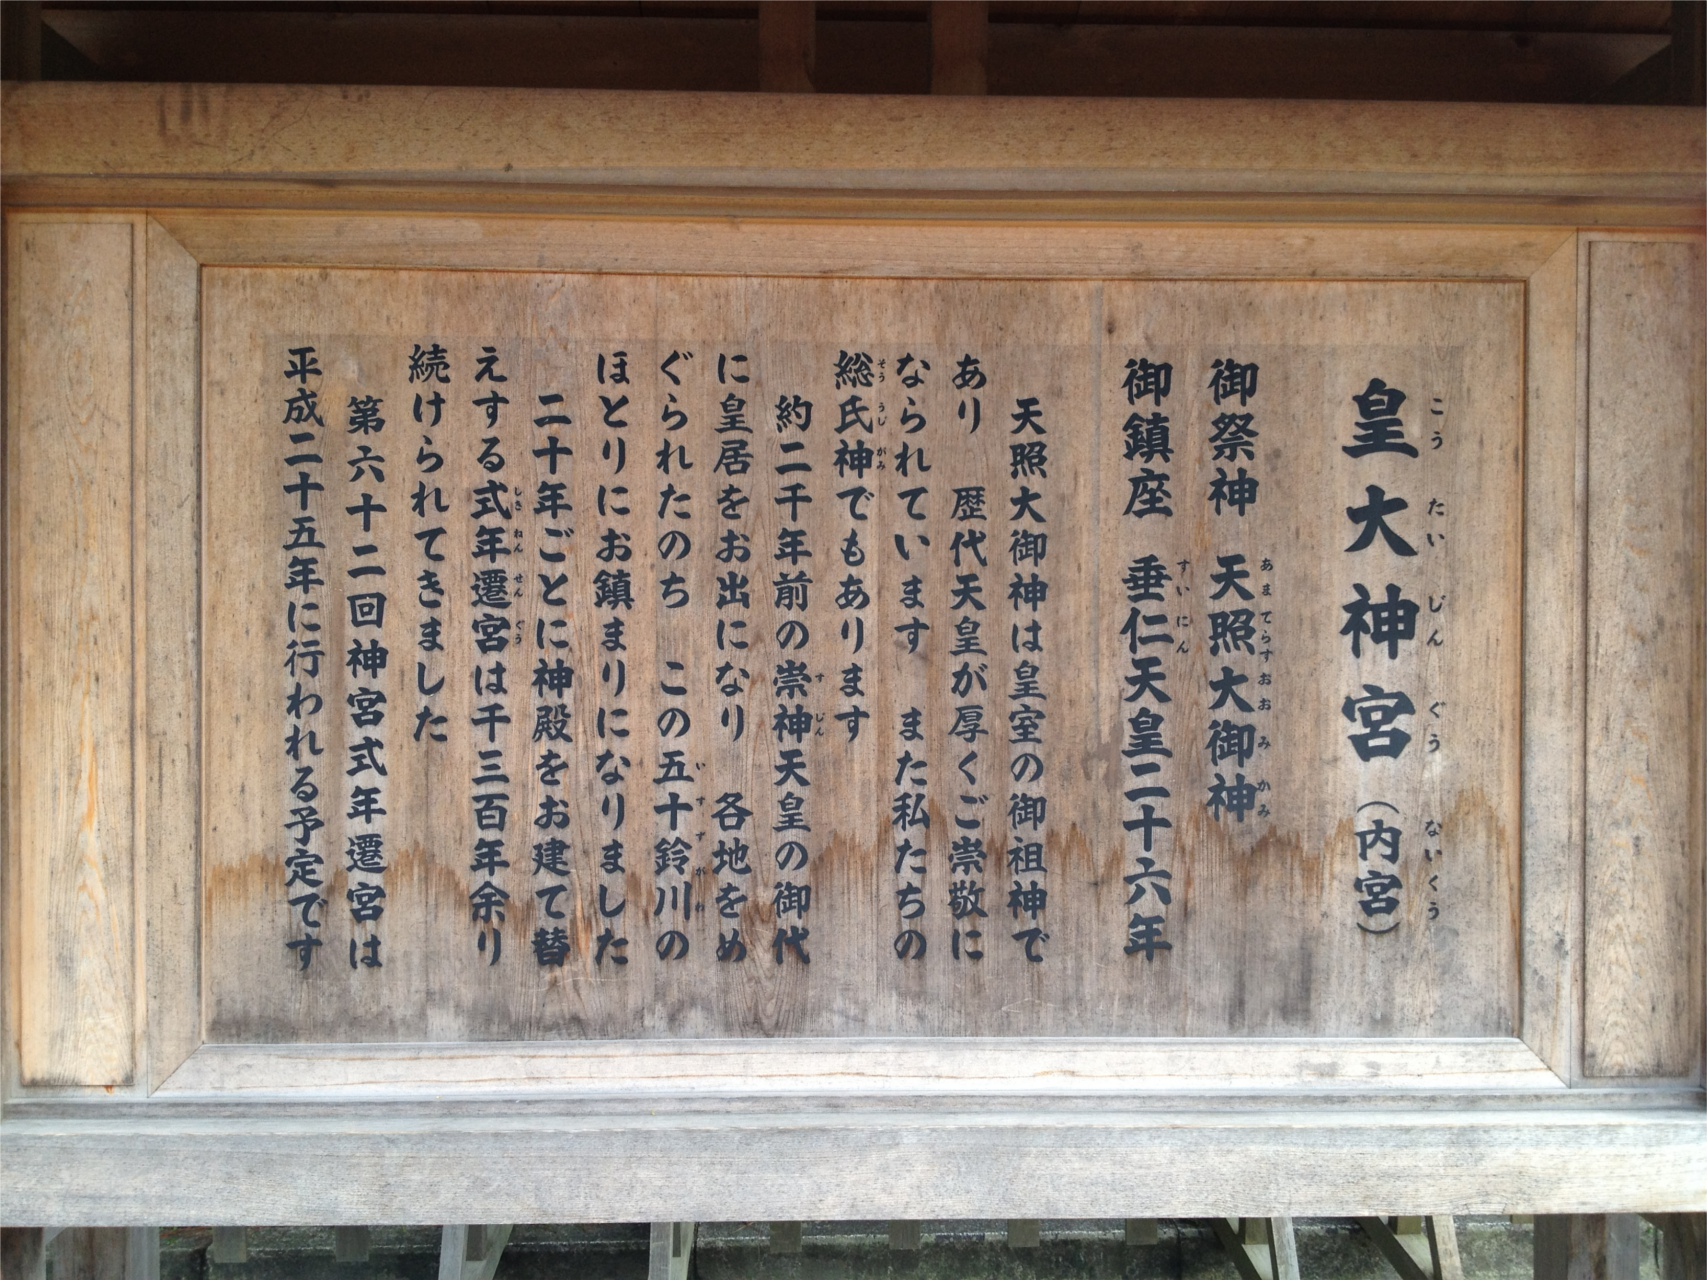 皇大神宮（内宮）
こうたいじんぐう ないくう
御祭神 天照大御神
あまてらすおおみかみ
御鎮座 垂仁天皇二十六年
すいにん
天照大御神は皇室の御祖神で
あり 歴代天皇が厚くご崇敬に
なられています また私たちの
総氏神でもあります
そううじがみ
約二千年前の崇神天皇の御代
すじん
に皇居をお出になり 各地をめ
ぐられたのち この五十鈴川の
いすずがわ
ほとりにお鎮まりになりました
二十年ごとに神殿をお建て替
えする式年遷宮は千三百年余り
しきねんせんぐう
続けられてきました
第六十二回神宮式年遷宮は
平成二十五年に行われる予定です